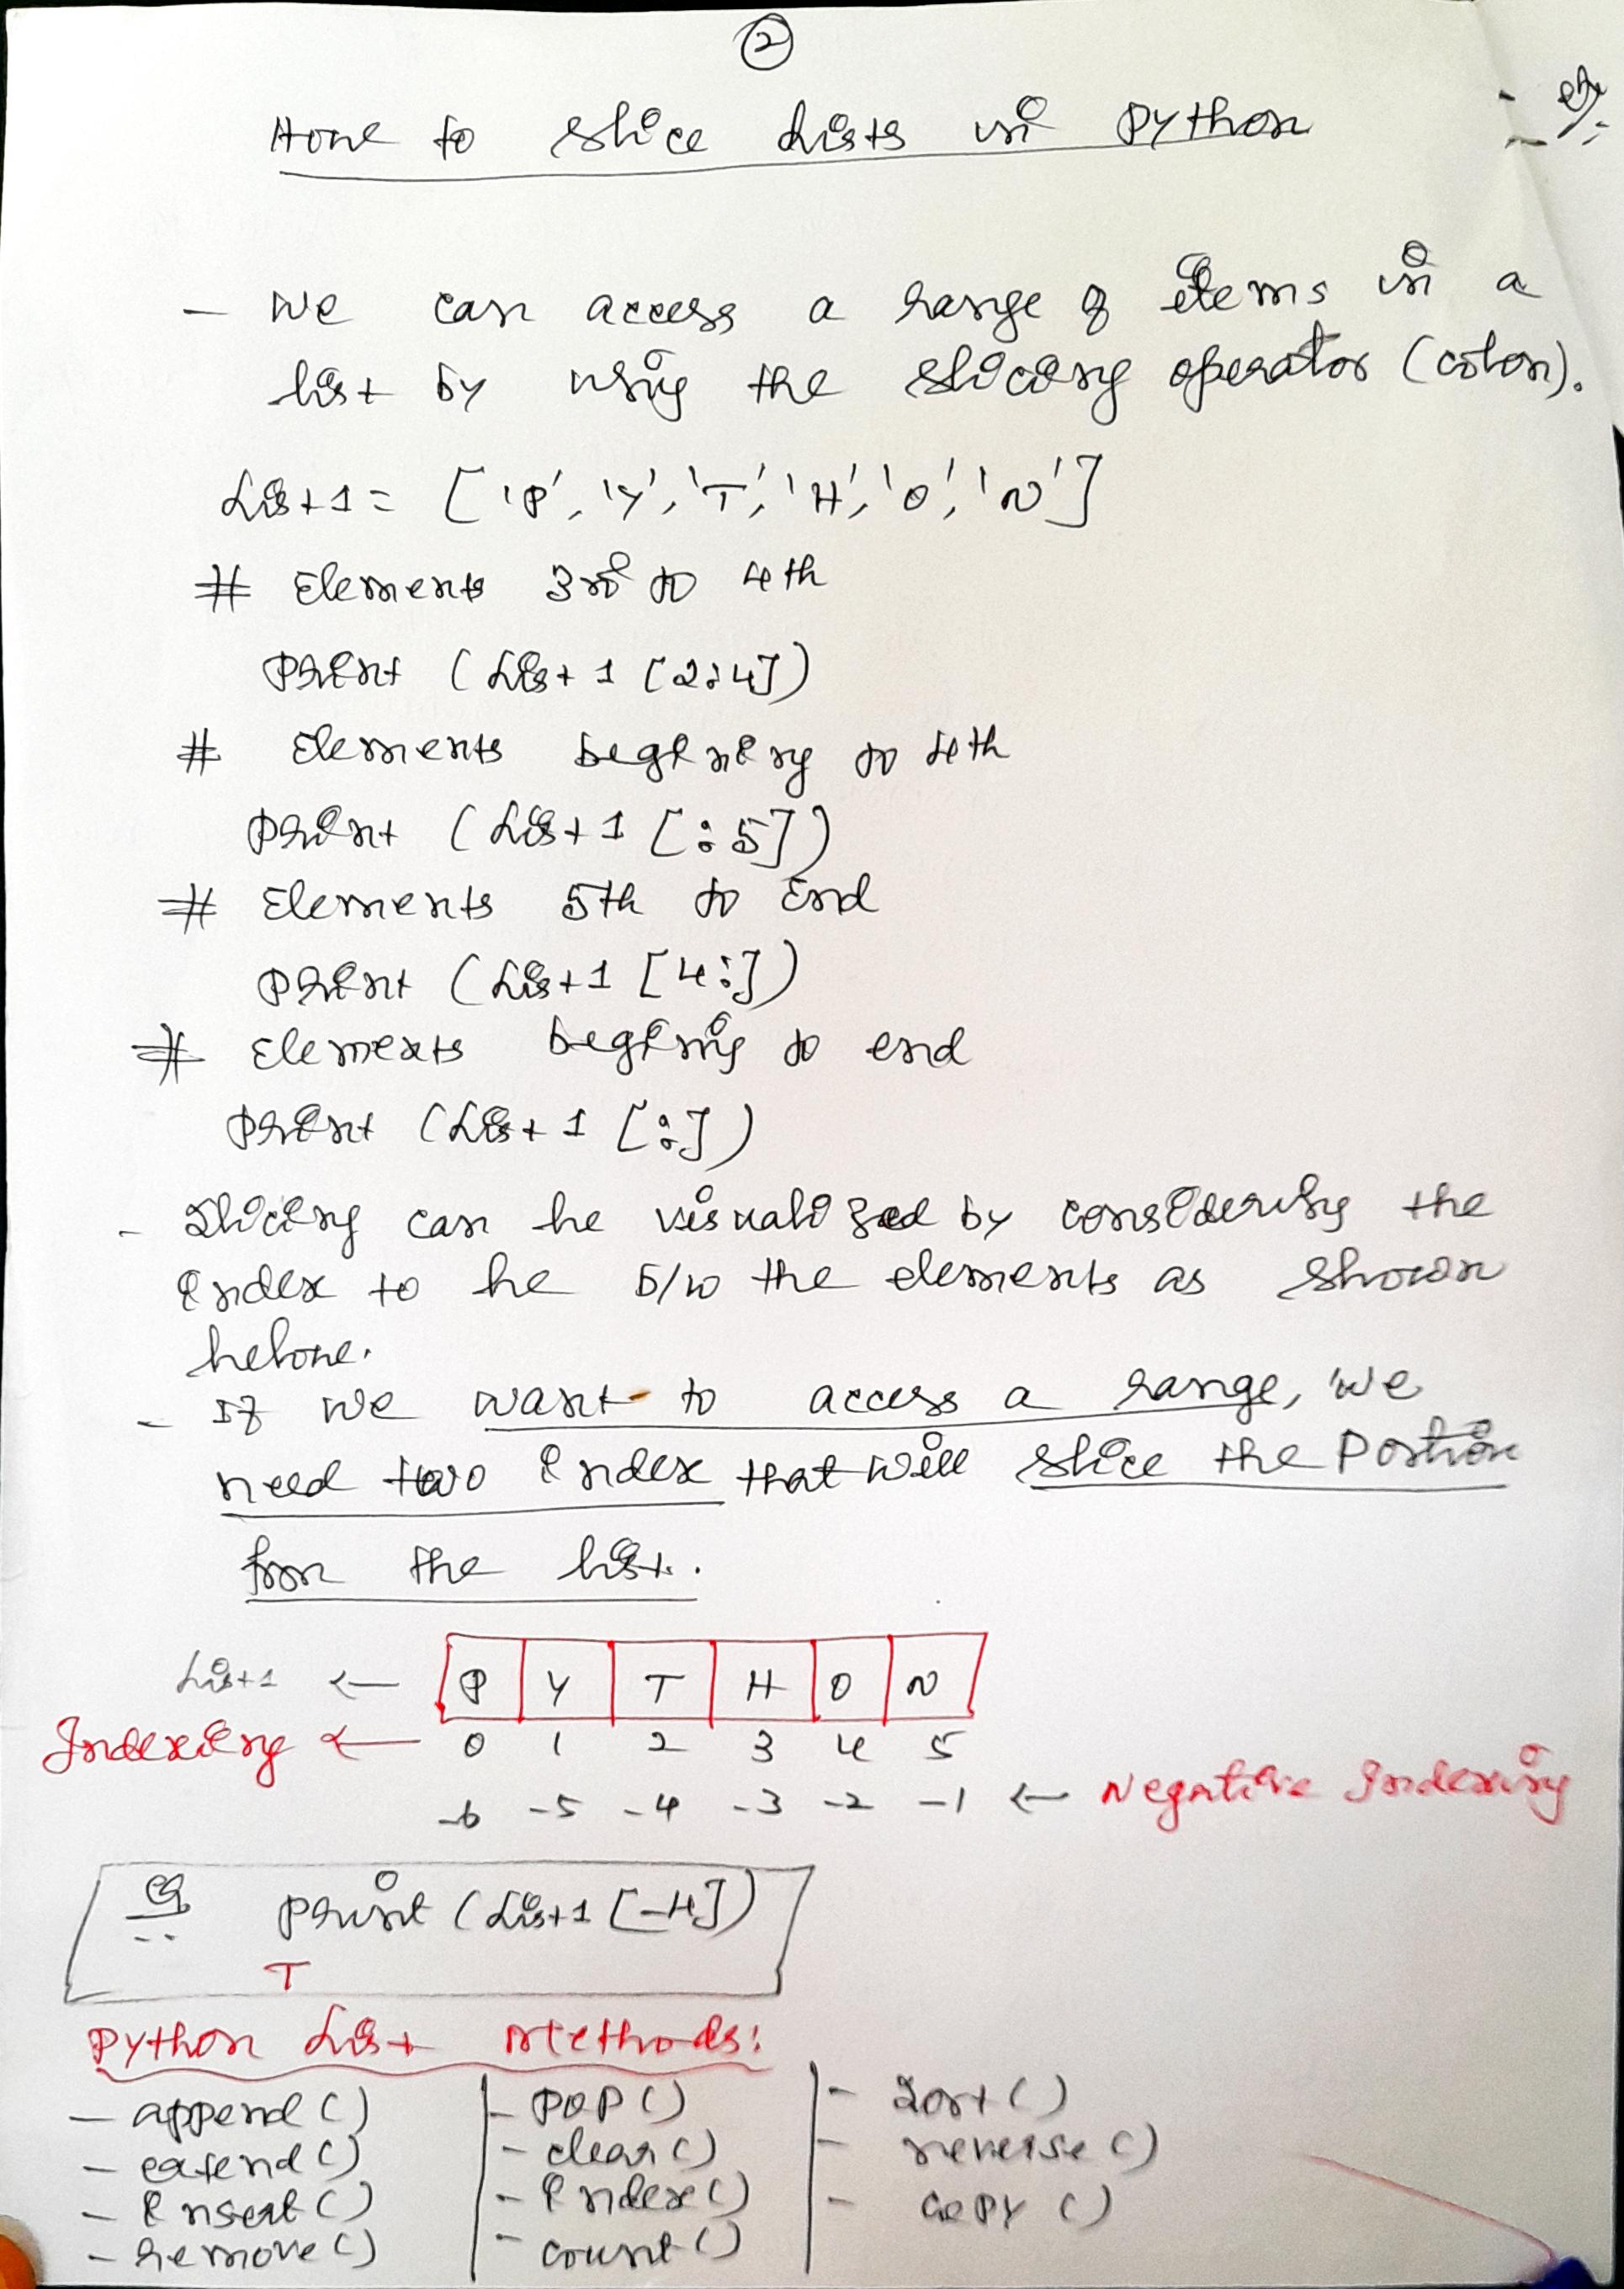 2
How to slice Lists in Python
- We can access a range of items in a
list by using the slicing operator (colon).
List1 = ['P', 'Y', 'T', 'H', 'O', 'N']
# Elements 3rd to 4th
Print (List1 [2:4])
# Elements begining to 4th
Print (List1 [:5])
# Elements 5th to End
Print (List1 [4:])
# Elements begining to end
Print (List1 [:])
- Slicing can be visualized by considering the
index to be b/w the elements as shown
below.
- If we want to access a range, we
need two index that will slice the Portion
from the list.
List1 ← P Y T H O N
Indexing ← 0 1 2 3 4 5
-6 -5 -4 -3 -2 -1 ← Negative Indexing
eg print (List1 [-4])
T
Python List Methods:
- append () - POP () - Sort ()
- extend () - clear () - reverse ()
- Insert () - Index () - copy ()
- remove () - count ()